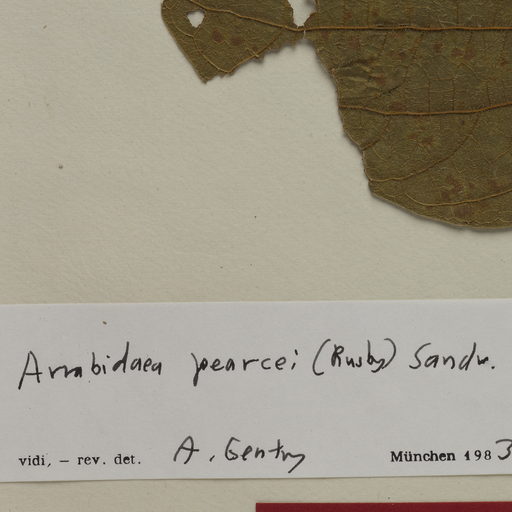 Arrabidaea pearcei (Rusby) Sandw.
vidi, – rev. det. A. Gentry München 1983